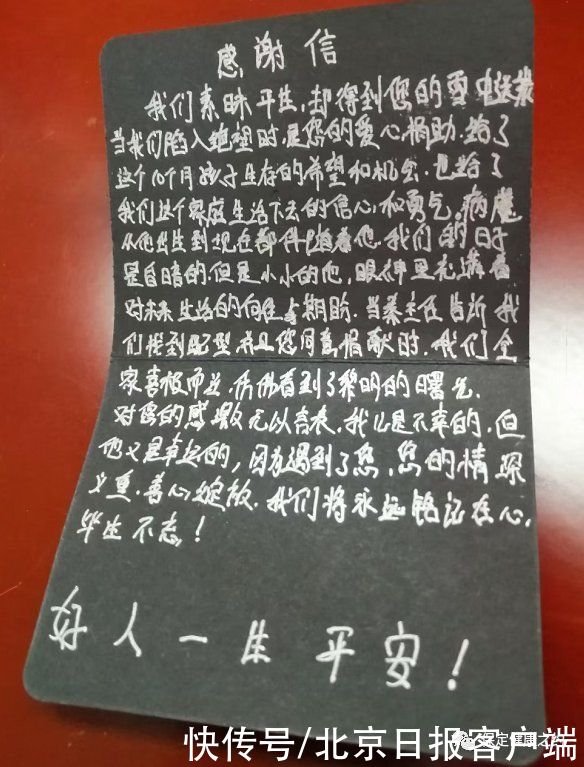 感谢信
我们素昧平生,却得到您的雪中送炭
当我们陷入绝望时.是您的爱心捐助.给了
这个10个月孩子生存的希望和机会.也给了
我们这个家庭生活下去的信心和勇气。病魔
从他出生到现在都伴随着他.我们的日子
是昏暗的.但是小小的他,眼神里充满着
对未来生活的向往与期盼.当秦主任告诉我
们找到配型并且您同意捐献时.我们全
家喜极而泣,仿佛看到了黎明的曙光.
对您的感激无以言表.我儿是不幸的.但
他又是幸运的,因为遇到了您,您的情深
义重.善心绽放.我们将永远铭记在心.
毕生不忘!
好人一生平安!
快传号/北京日报客户端
保定健康之